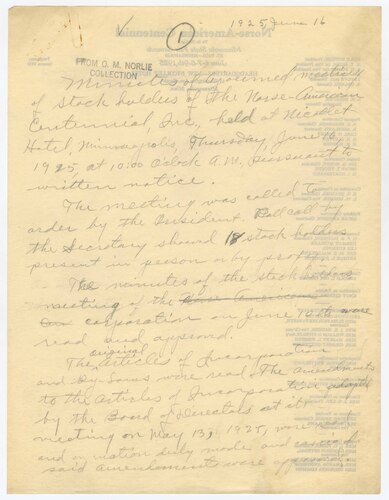 1925, June 16
1
FROM O. M. NORLIE
COLLECTION
Minutes of adjourned meeting
of stock holders of The Norse-American
Centennial, Inc., held at Nicollet
Hotel, Minneapolis, Thursday, June
1925, at 10:00 O'clock A.M., Pursuant to
written notice.
The meeting was called to
order by the President. Roll call by
the Secretary showed 18 stock holders
present in person or by proxy.
The minutes of the stock holders
meeting of the Norse American
corporation on June were
read and approved.
original
The Articles of Incorporation
and By-Laws were read. The amendments
to the Articles of Incorporation adopted
by the Board of Directors at its
meeting on May 13, 1925, were read
and on motion duly made and
said amendments were